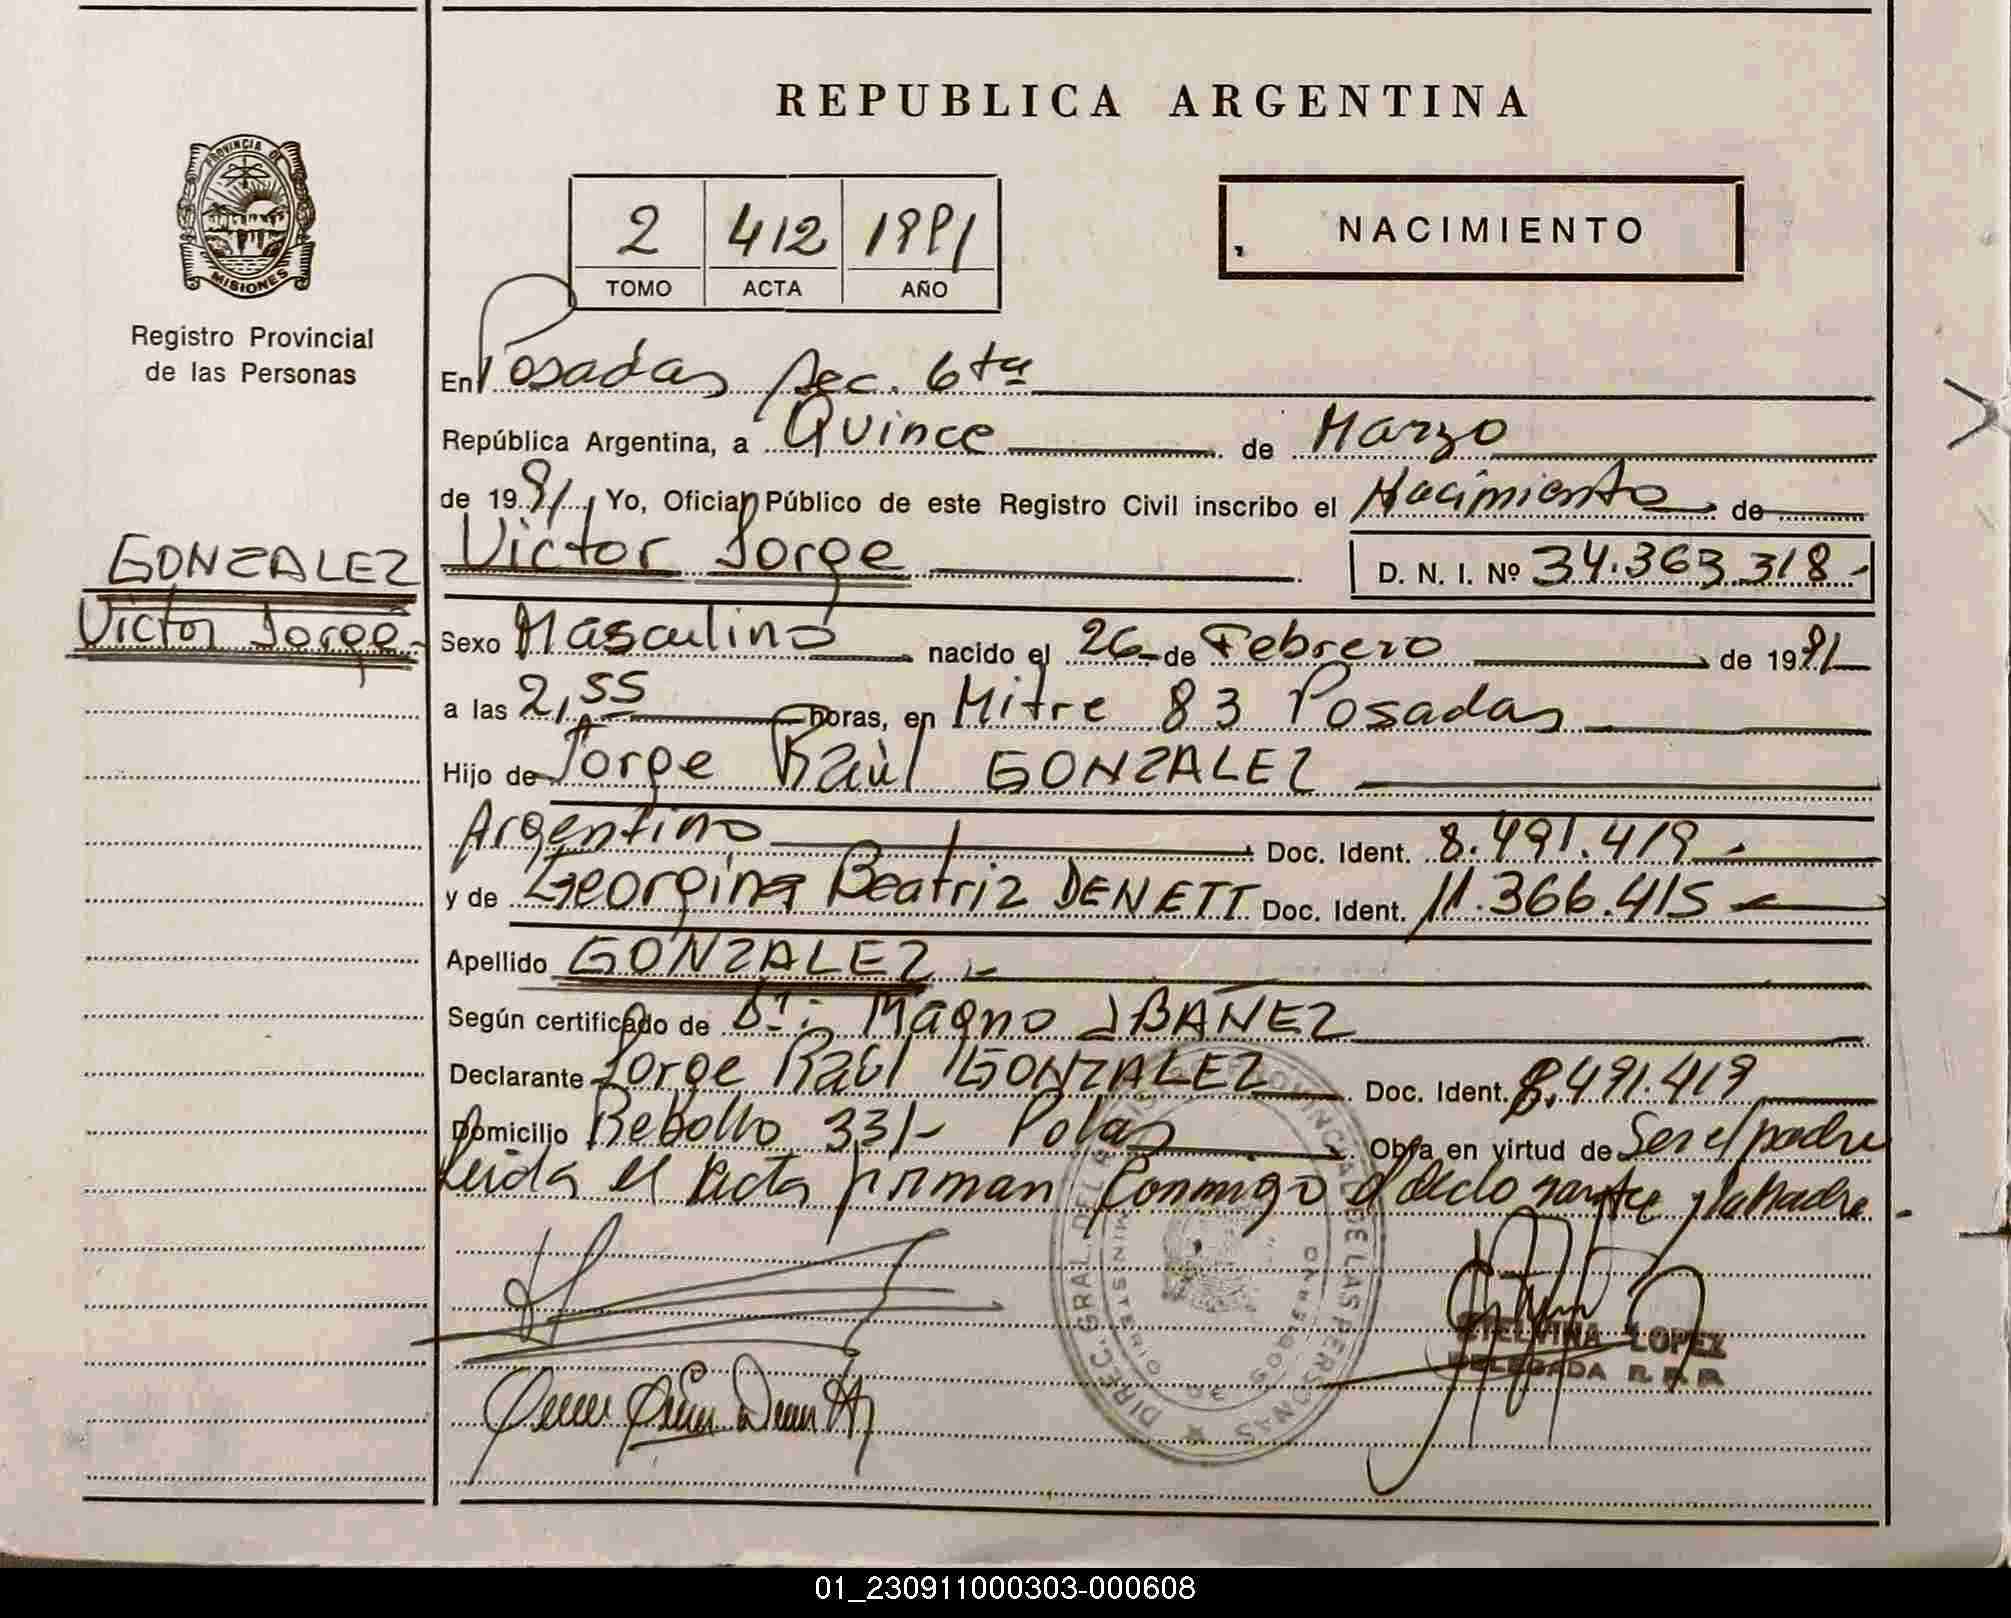 REPUBLICA ARGENTINA
PROVINCIA DE
MISIONES
Registro Provincial
de las Personas
2 412 1991
TOMO ACTA AÑO
NACIMIENTO
En Posadas sec. 6ta
República Argentina, a Quince de Marzo
de 1991 Yo, Oficial Público de este Registro Civil inscribo el Nacimiento de
GONZALEZ
Victor Jorge
Victor Jorge D. N. I. Nº 34.363.318-
Sexo Masculino nacido el 26 de Febrero de 1991
a las 2,55 horas, en Mitre 83 Posadas
Hijo de Jorge Raùl GONZALEZ
Argentino Doc. Ident. 8.491.419
y de Georgina Beatriz DENETT Doc. Ident. 11.366.415
Apellido GONZALEZ
Según certificado de Dr: Magno IBAÑEZ
Declarante Jorge Raúl GONZALEZ Doc. Ident. 8.491.419
Domicilio Rebollo 331- Pdas Obra en virtud de Ser el padre
Leida el acta firman conmigo el declarante y la Madre.
DIREC. GRAL. DEL REGISTRO PROVINCIAL DE LAS PERSONAS
MINISTERIO DE GOBIERNO
ETELVINA LOPEZ
DELEGADA R. P. P.
01_230911000303-000608